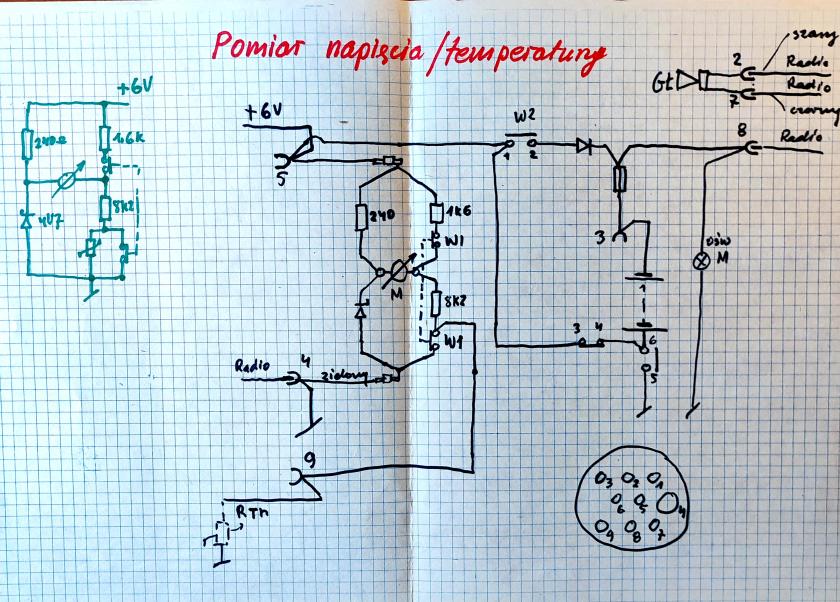 Pomiar napięcia/temperatury
szary
2
Radio
Gł
Radio
7
czarny
+6V
+6V
W2
8
Radio
240Ω
1,6k
1
2
5
8k2
240
1k6
3
4V7
W1
ośw
M
M
8k2
1
3
4
6
W1
Radio
4
zielony
5
9
RTh
3
2
1
6
5
4
9
8
7